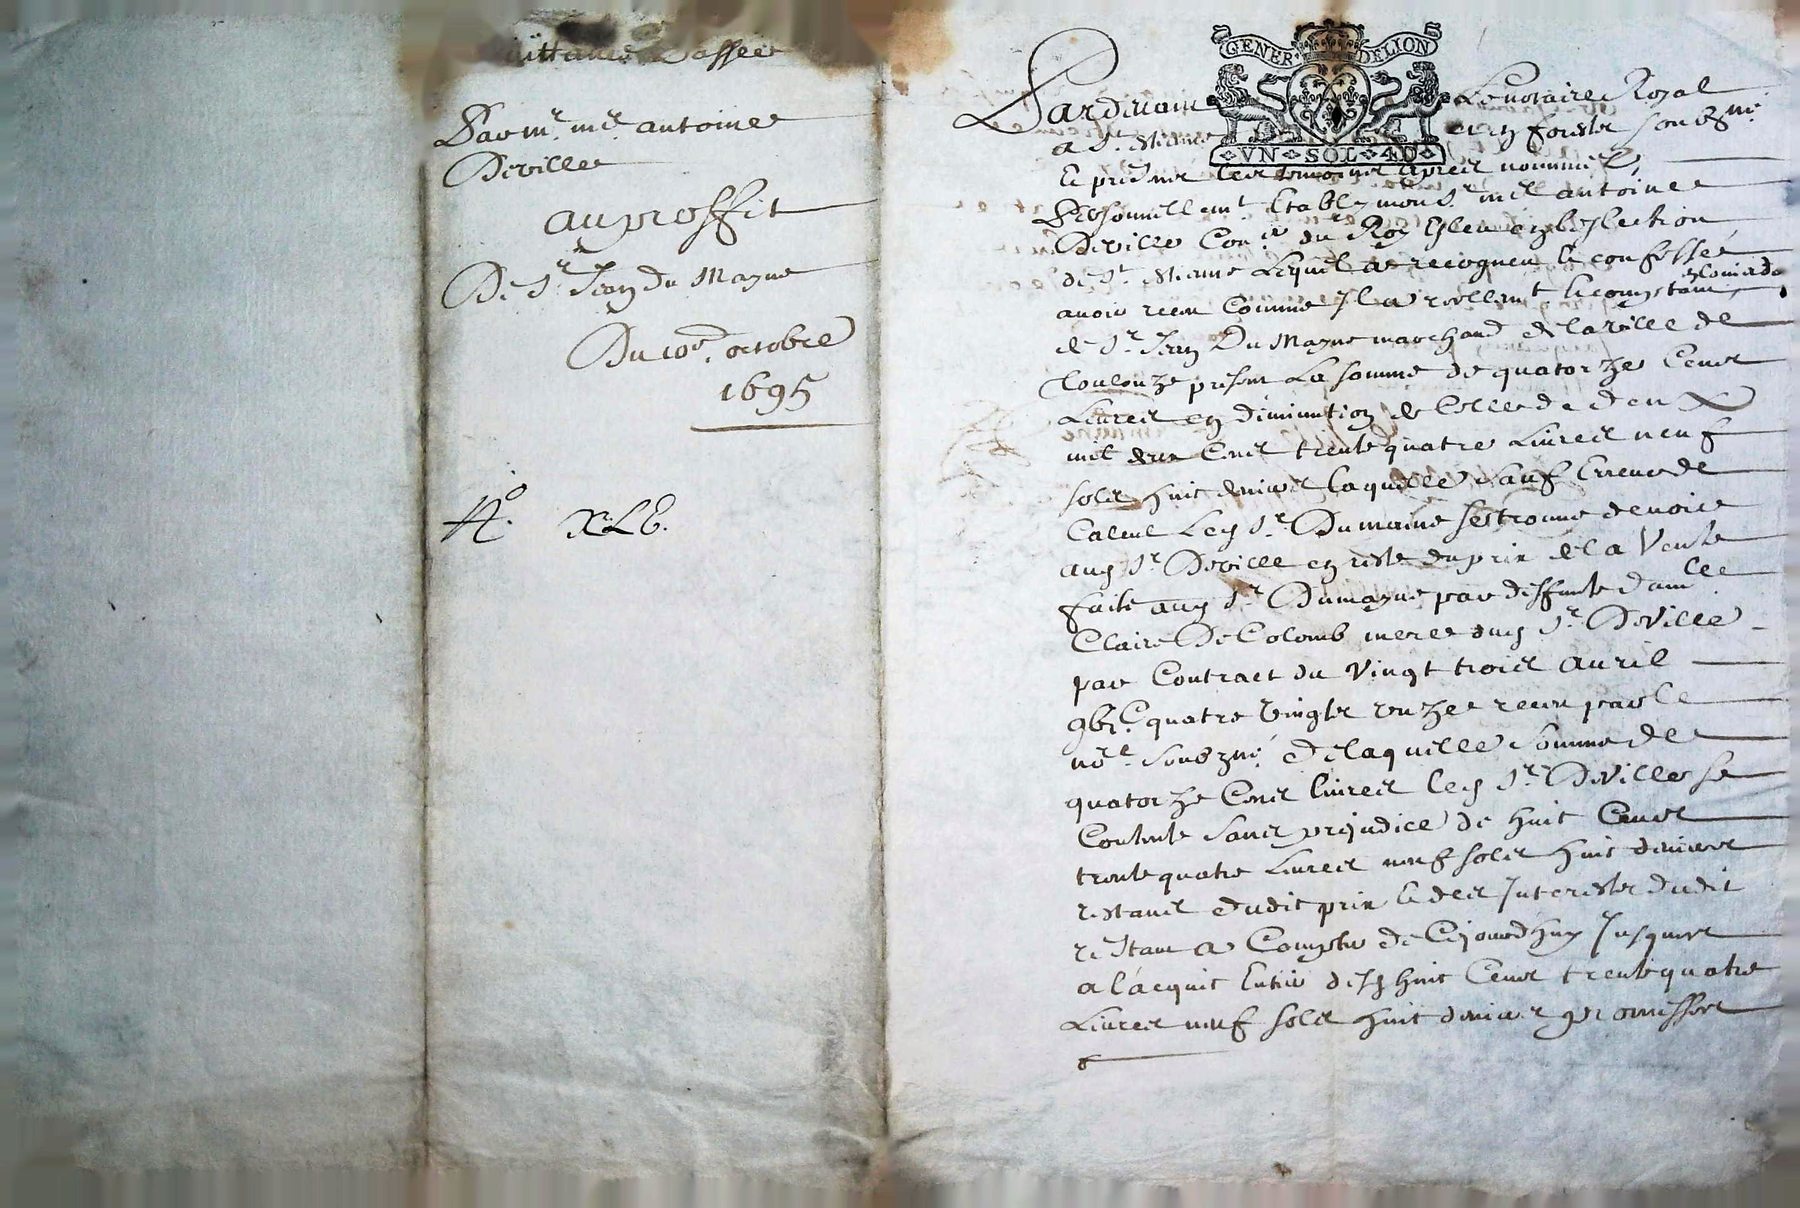 quittance passée
Par mr. me antoine
Deville
au proffit
De Sr Jean Du Mayne
Du 10e. octobre
1695
No. XLE.
GENER. DE LION
VN SOL 4D
Pardevant Le notaire Royal
a St. Estienne en forestz soubzne
et presents les tesmoins apres nommés,
Personnellemt. estably monsr. me antoine
Deville Coner. du Roy Esleu en l'eslection
de St. Estienne Lequel a recogneu et confessé
avoir receu Comme Il a reellemt. et comptant
de Sr. Jean Du Mayne marchand de la ville de
Toulouze present La somme de quatorze Cents
Livres en diminution de Celle de deux
mil deux Cents trente quatre Livres neuf
solz huit deniers laquelle sauf Erreur de
Calcul Led Sr. Dumaine se trouve devoir
aud Sr. Deville en reste du prix de la Vente
faite aud Sr. Dumayne par deffunte damlle.
Claire De Colomb mere dud Sr. Deville
par Contract du Vingt trois avril
quatre vingts unze receu par le
nore. soubzné. De laquelle somme de
quatorze Cents livres led Sr. Deville se
Contente sans prejudice de huit Cents
trente quatre Livres neuf solz huit deniers
restants dudit prix et des Interestz dudit
restant a Compter de Cejourd'huy Jusques
a l'acquit Entier desd huit Cents trente quatre
Livres neuf solz huit deniers